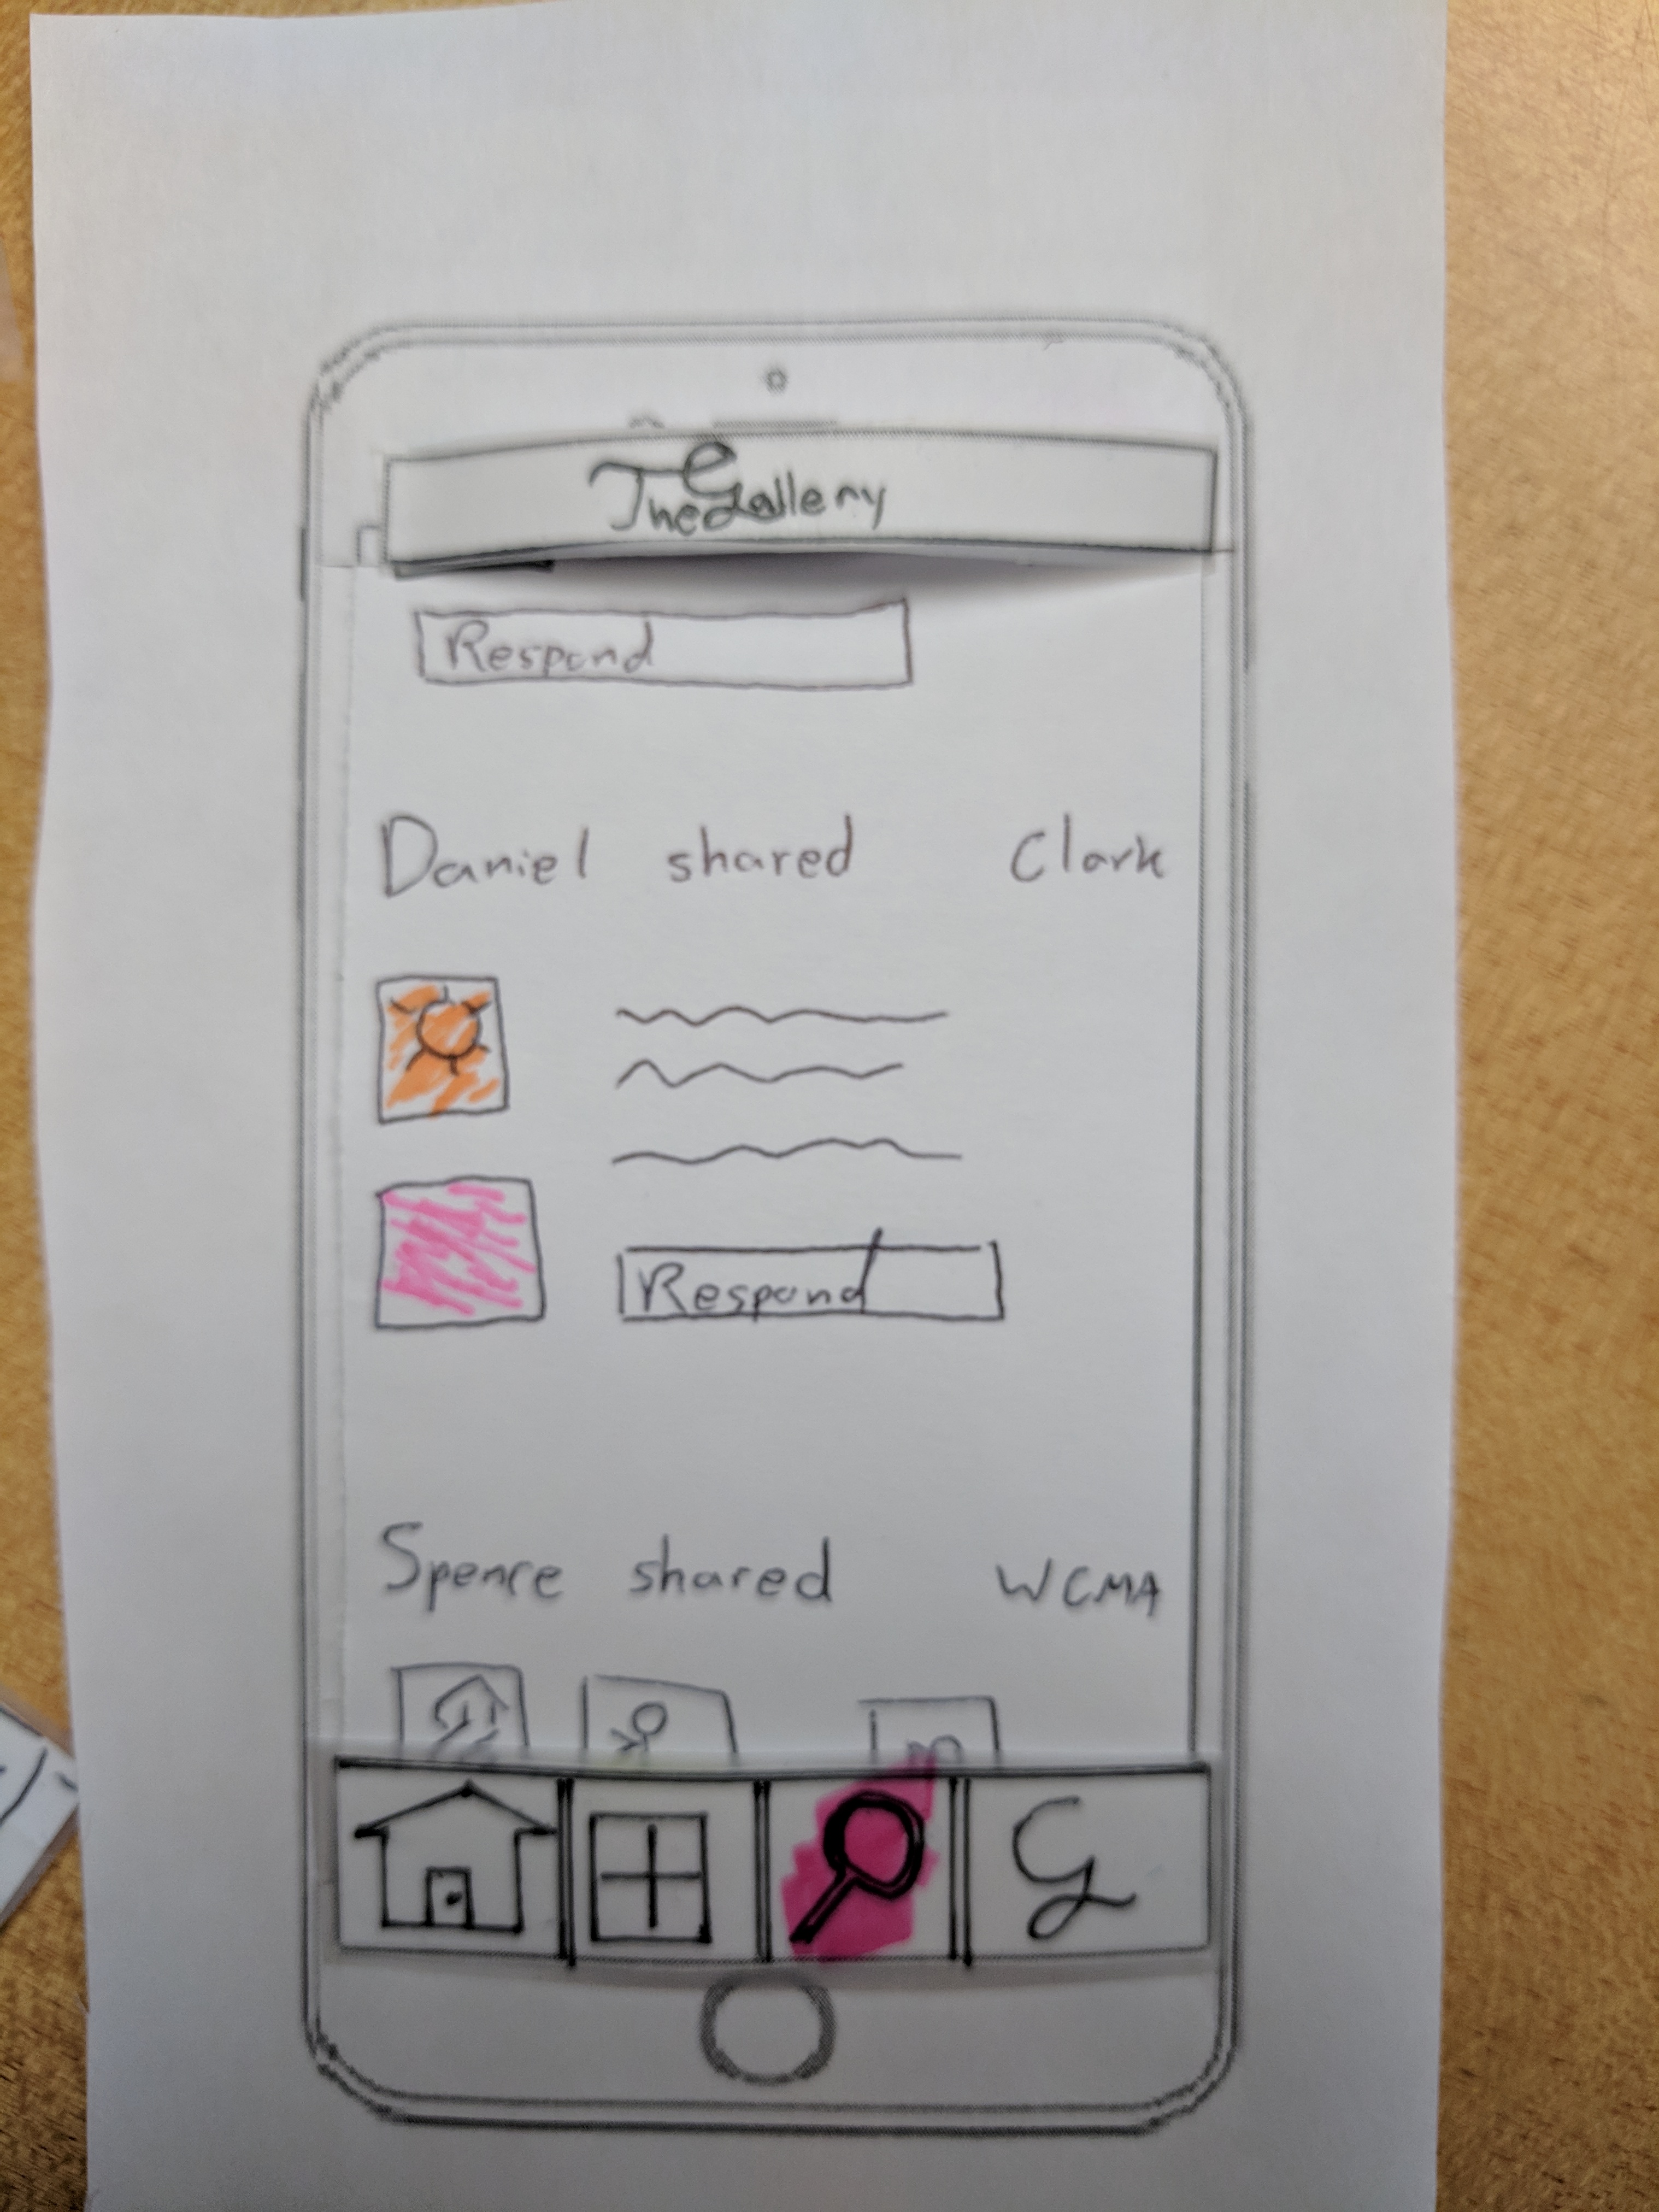 The Gallery
Respond
Daniel shared Clark
Respond
Spence shared WCMA
G